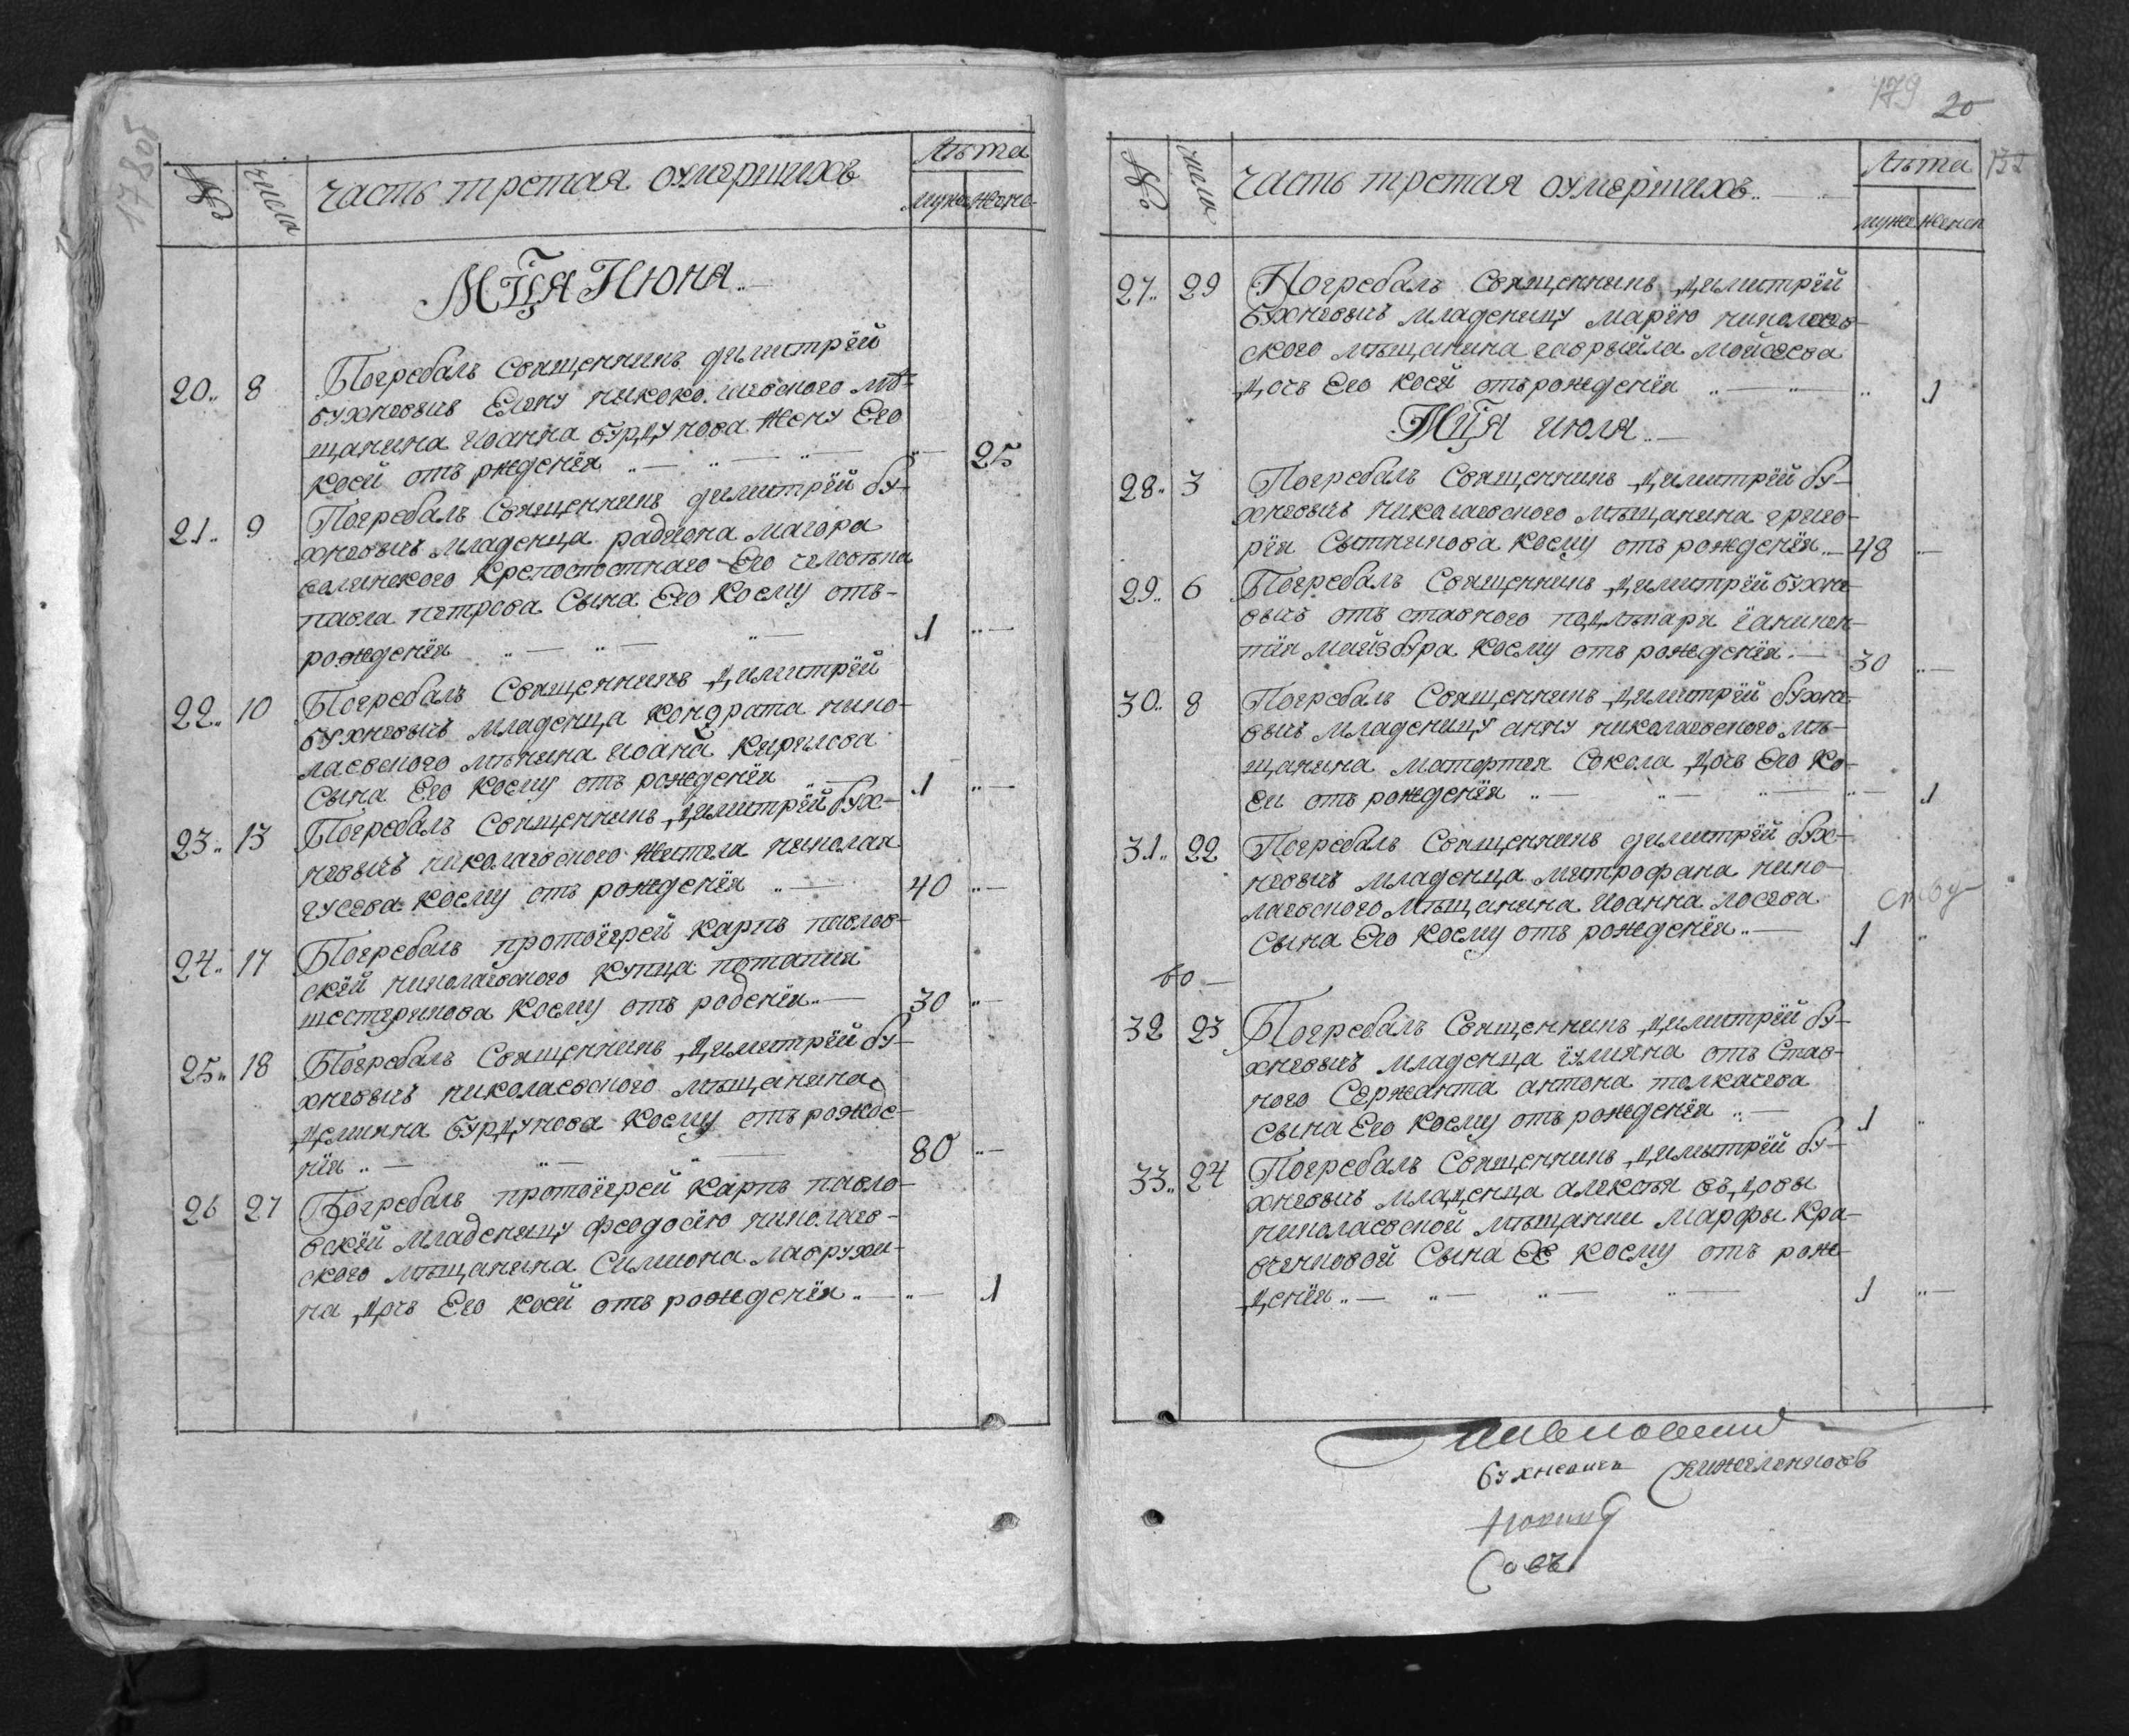 178 об
№ числа часть третая оумершихъ Лѣта
муже жене
Мц҃а Июня
20 8 Погребалъ Священникъ димитрїй
бухневичъ Елену никола евского мѣ-
щанина Иоанна бурдунова жену Его
коей отъ рждения 25
21 9 Погребалъ Священникъ димитрїй бу-
хневичъ младенца радиона маѓора
крепостостнаго Его человѣка
павла петрова Сына Его коему отъ-
рождения 1
22 10 Погребалъ Священникъ димитрїй
бухневичъ младенца кондрата нико-
лаевского мѣнина иоана кирилова
Сына Его коему отъ рождения 1
23 13 Погребалъ Священникъ димитрїй бух-
невичъ николаевского жителя николая
гусева коему отъ рождения 40
24 17 Погребалъ протоїерей карпъ павлов-
скїй николаевского купца потапия
шестерикова коему отъ родения 30
25 18 Погребалъ Священникъ димитрїй бу-
хневичъ николаевского мѣщанина
демияна бурдунова коему отъ рожде-
нїя 80
26 27 Погребалъ протоїерей карпъ павло-
вскїй младеницу феодосїю николаев-
ского мѣщанина Симиона лаврухи-
на дочь Его коей отъ рождения 1
179 20
№ числа часть третая оумершихъ Лѣта
муже женск
27 29 Погребалъ Священникъ димитрїй
бухневичъ младеницу марїю николаев-
ского мѣщанина гаврыйла мойсеева
дочь Его коей отъ рождения 1
Мц҃а июля
28 3 Погребалъ Священникъ димитрїй бу-
хневичъ николаевского мѣщанина григо-
рїя Сытникова коему отъ рождения 48
29 6 Погребалъ Священникъ димитрїй бухне-
вичъ отъ ставного подлѣкаря
майзбура коему отъ рождения 30
30 8 Погребалъ Священникъ димитрїй бухне-
вичъ младеницу анну николаевского мѣ-
щанина Сокола дочь Его ко-
еи отъ рождения 1
31 22 Погребалъ Священникъ димитрїй бух-
невичъ младенца митрофана нико-
лаевского мѣщанина иоанна лосева
Сына Его коему отъ рождения 1
32 23 Погребалъ Священникъ димитрїй бу-
хневичъ младенца їулияна отъ Став-
ного Сержанта антона толкачева
сына Его коему отъ рождения 1
33 24 Погребалъ Священникъ димитрїй бу-
хневичъ младенца алексѣя вдовы
николаевской мѣщанки марфы Кра-
вченковой Сына Ее коему отъ рож-
дения 1
бухневичъ